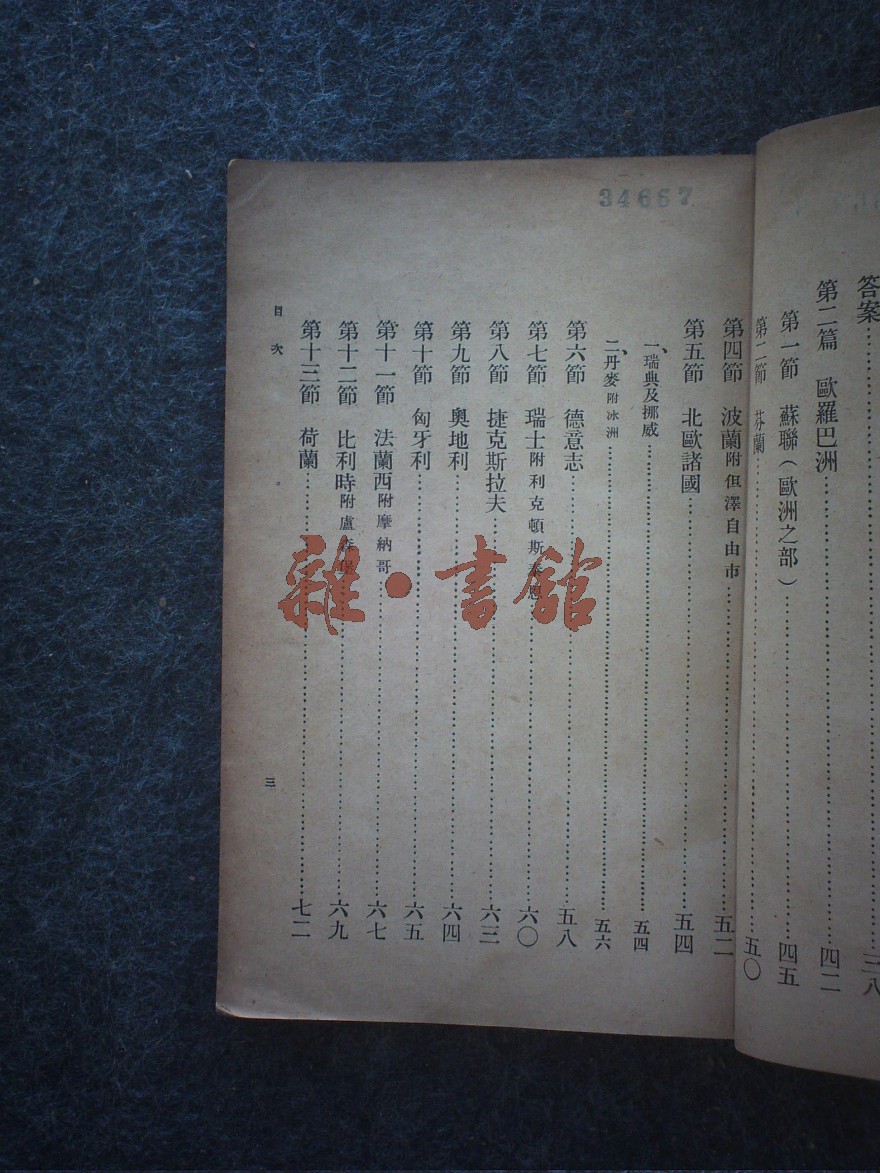 34667
答案……三八
第二篇 歐羅巴洲……四二
第一節 蘇聯（歐洲之部）……四五
第二節 芬蘭……五〇
第四節 波蘭附但澤自由市……五二
第五節 北歐諸國……五四
一、瑞典及挪威……五四
二、丹麥附冰洲……五六
第六節 德意志……五八
第七節 瑞士附利克頓斯泰恩……六〇
第八節 捷克斯拉夫……六三
第九節 奧地利……六四
第十節 匈牙利……六五
第十一節 法蘭西附摩納哥……六七
第十二節 比利時附盧森堡……六九
第十三節 荷蘭……七二
目次
三
雜·書館